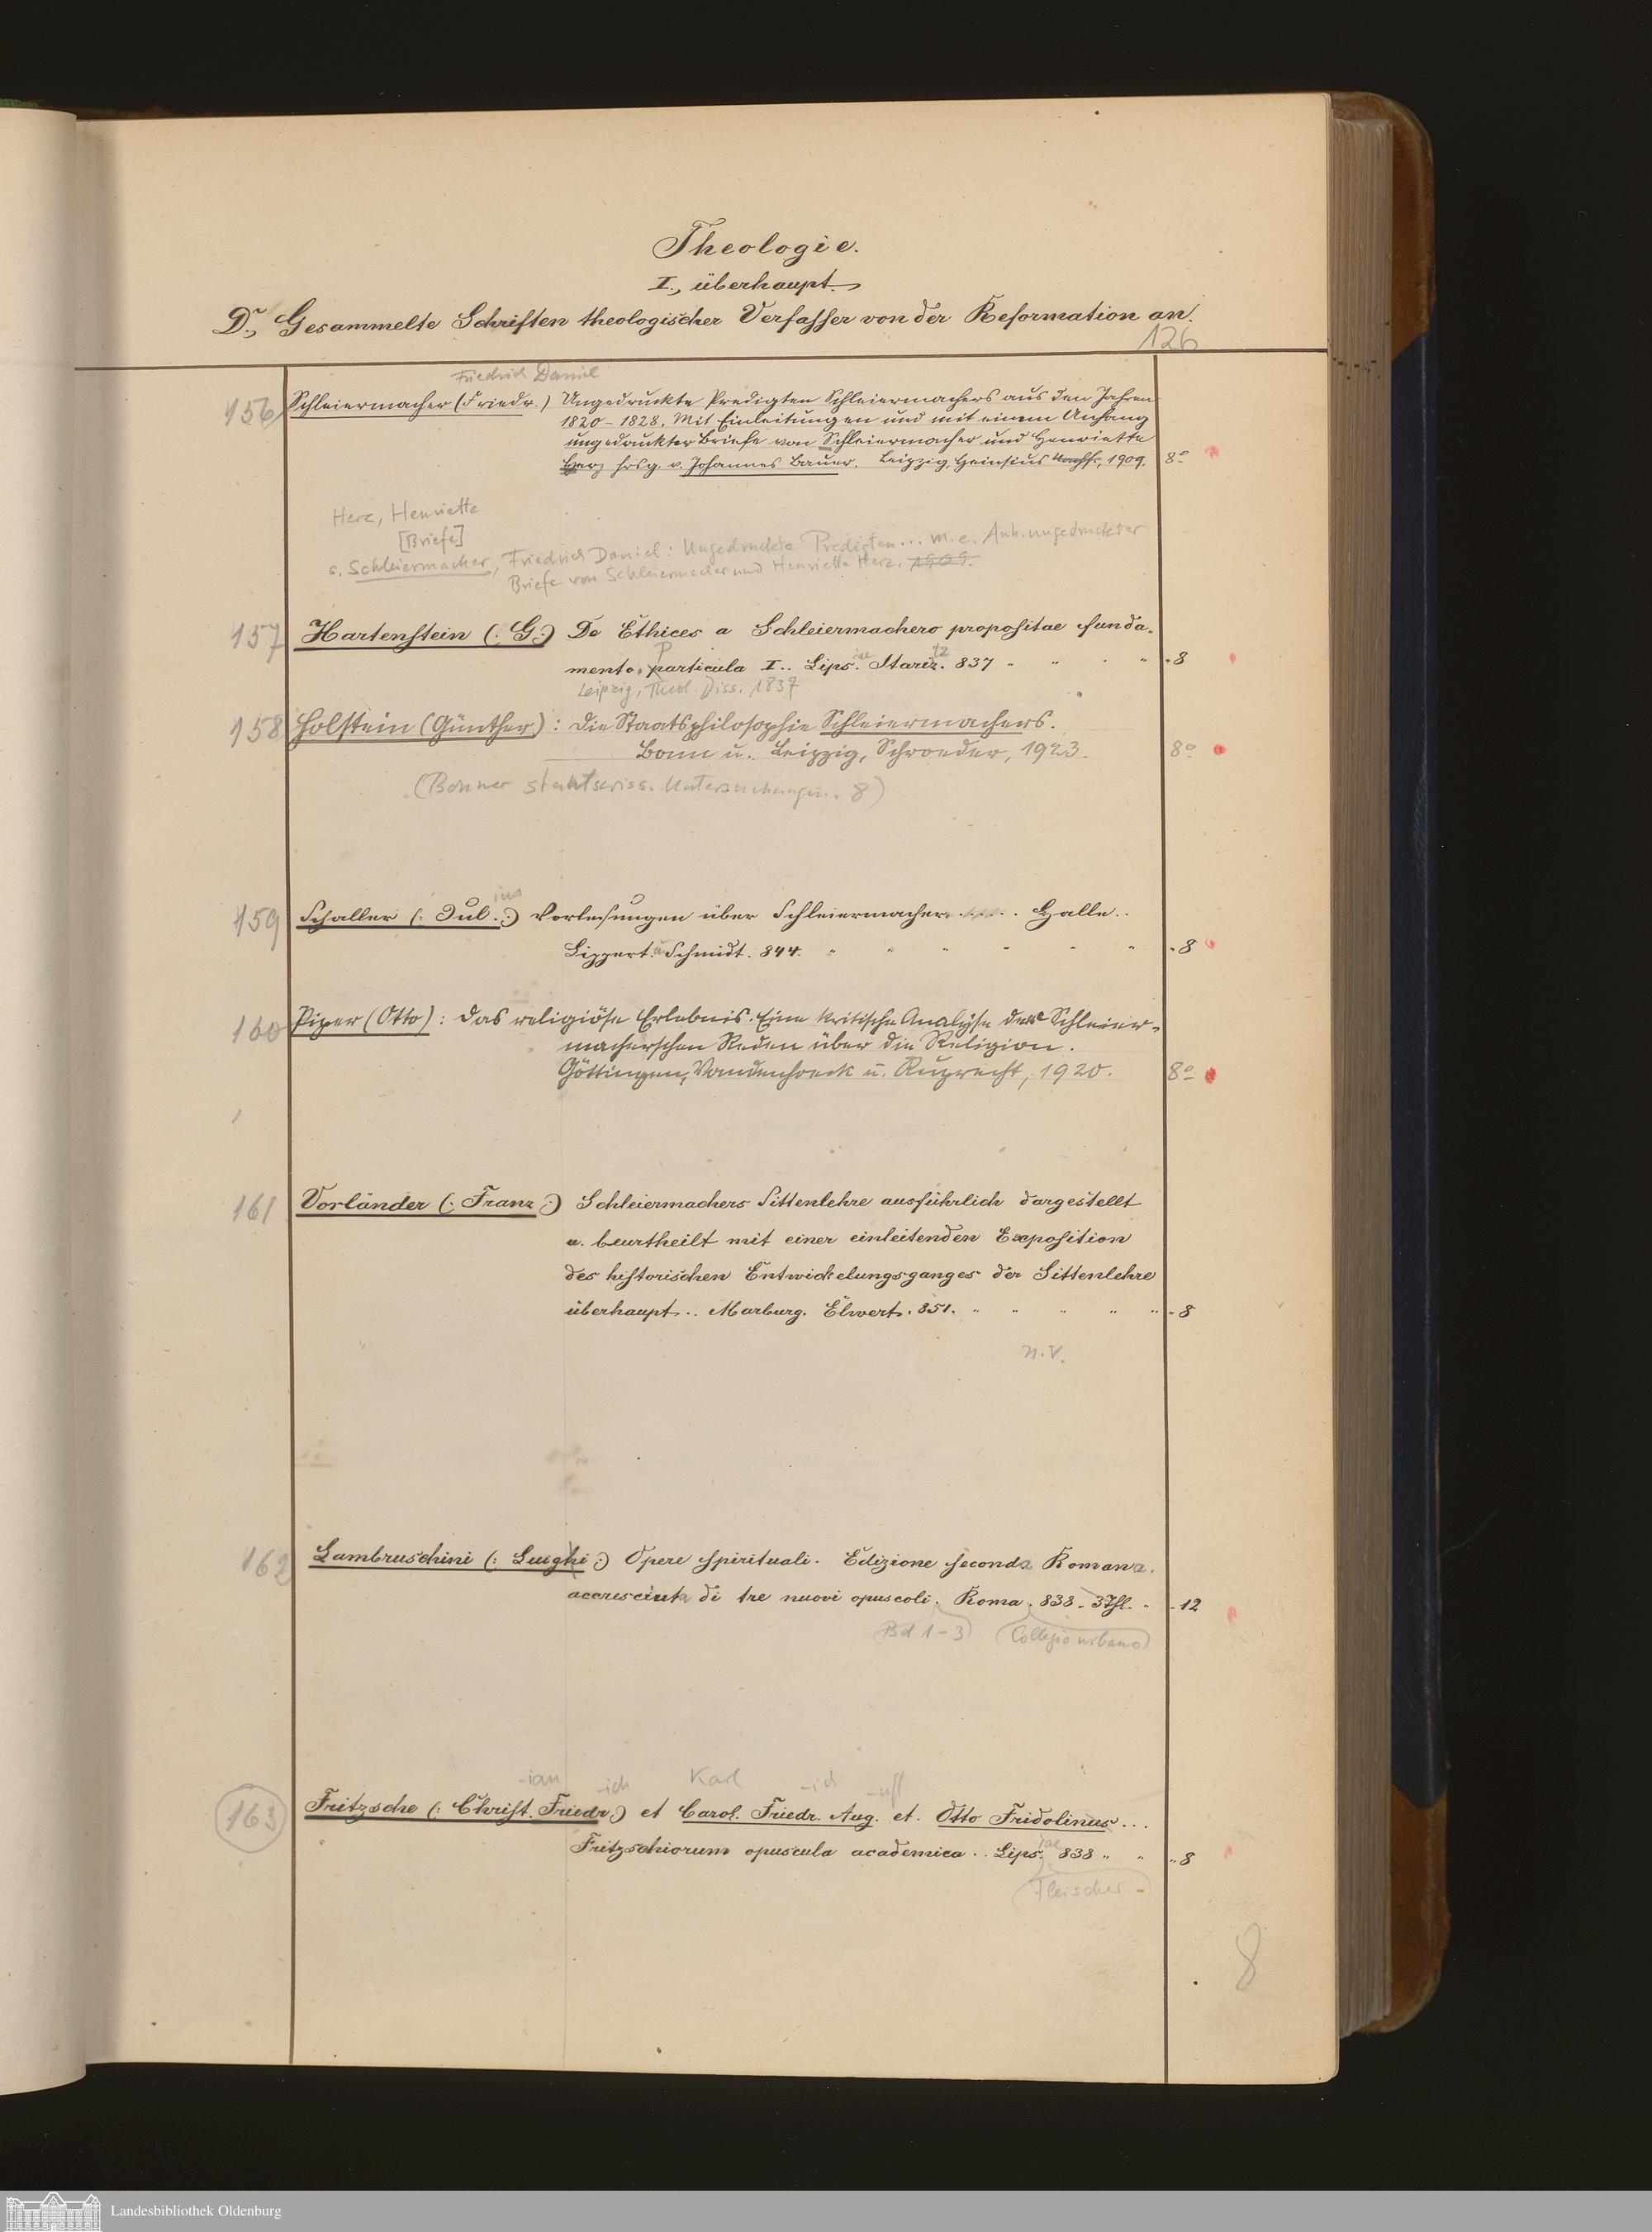 Theologie.
I., überhaupt.
D., Gesammelte Schriften theologischer Verfasser von der Reformation an.
126
Friedrich Daniel
156 Schleiermacher (Friedr.) Ungedruckte Predigten Schleiermachers aus den Jahren
1820-1828. Mit Einleitungen und mit einem Anhang
ungedruckter Briefe von Schleiermacher und Henriette
Herz hrsg. v. Johannes Bauer. Leipzig, Heinsius Nachf., 1909. 8º
Herz, Henriette
[Briefe]
s. Schleiermacher, Friedrich Daniel: Ungedruckte Predigten... m. e. Anh. ungedruckter
Briefe von Schleiermacher und Henriette Herz. 1909.
157 Hartenstein (: G:) De Ethices a Schleiermachero propositae funda-
mento. Particula I.. Lips.iae Stariz.tz 837 " " " " 8
Leipzig, Theol. Diss. 1837
158 Holstein (Günther): Die Staatsphilosophie Schleiermachers.
Bonn u. Leipzig, Schroeder, 1923. 8º
(Bonner staatswiss. Untersuchungen. 8)
ius
159 Schaller (: Jul. :) Vorlesungen über Schleiermacher. . . . . Halle..
Lippert. u Schmidt. 844. " " " " " " 8
160 Piper (Otto): Das religiöse Erlebnis. Eine kritische Analyse der Schleier-
macherschen Reden über die Religion.
Göttingen, Vandenhoeck u. Ruprecht, 1920. 8º
161 Vorländer (: Franz :) Schleiermachers Sittenlehre ausführlich dargestellt
u. beurtheilt mit einer einleitenden Exposition
des historischen Entwickelungsganges der Sittenlehre
überhaupt.. Marburg. Elwert. 851. " " " " " 8
n.V.
162 Lambruschini (: Luighi :) Opere spirituali. Edizione seconda Romana.
accresciuta di tre nuovi opuscoli. Roma. 838. 3Thl. " 12
(Bd 1-3) (Collegio urbano)
-ian -ich Karl -ich -ust
163 Fritzsche (: Christ. Friedr. :) et Carol. Friedr. Aug. et. Otto Fridolinus...
Fritzschiorum opuscula academica.. Lips.iae 838 " " " 8
Fleischer
8
Landesbibliothek Oldenburg